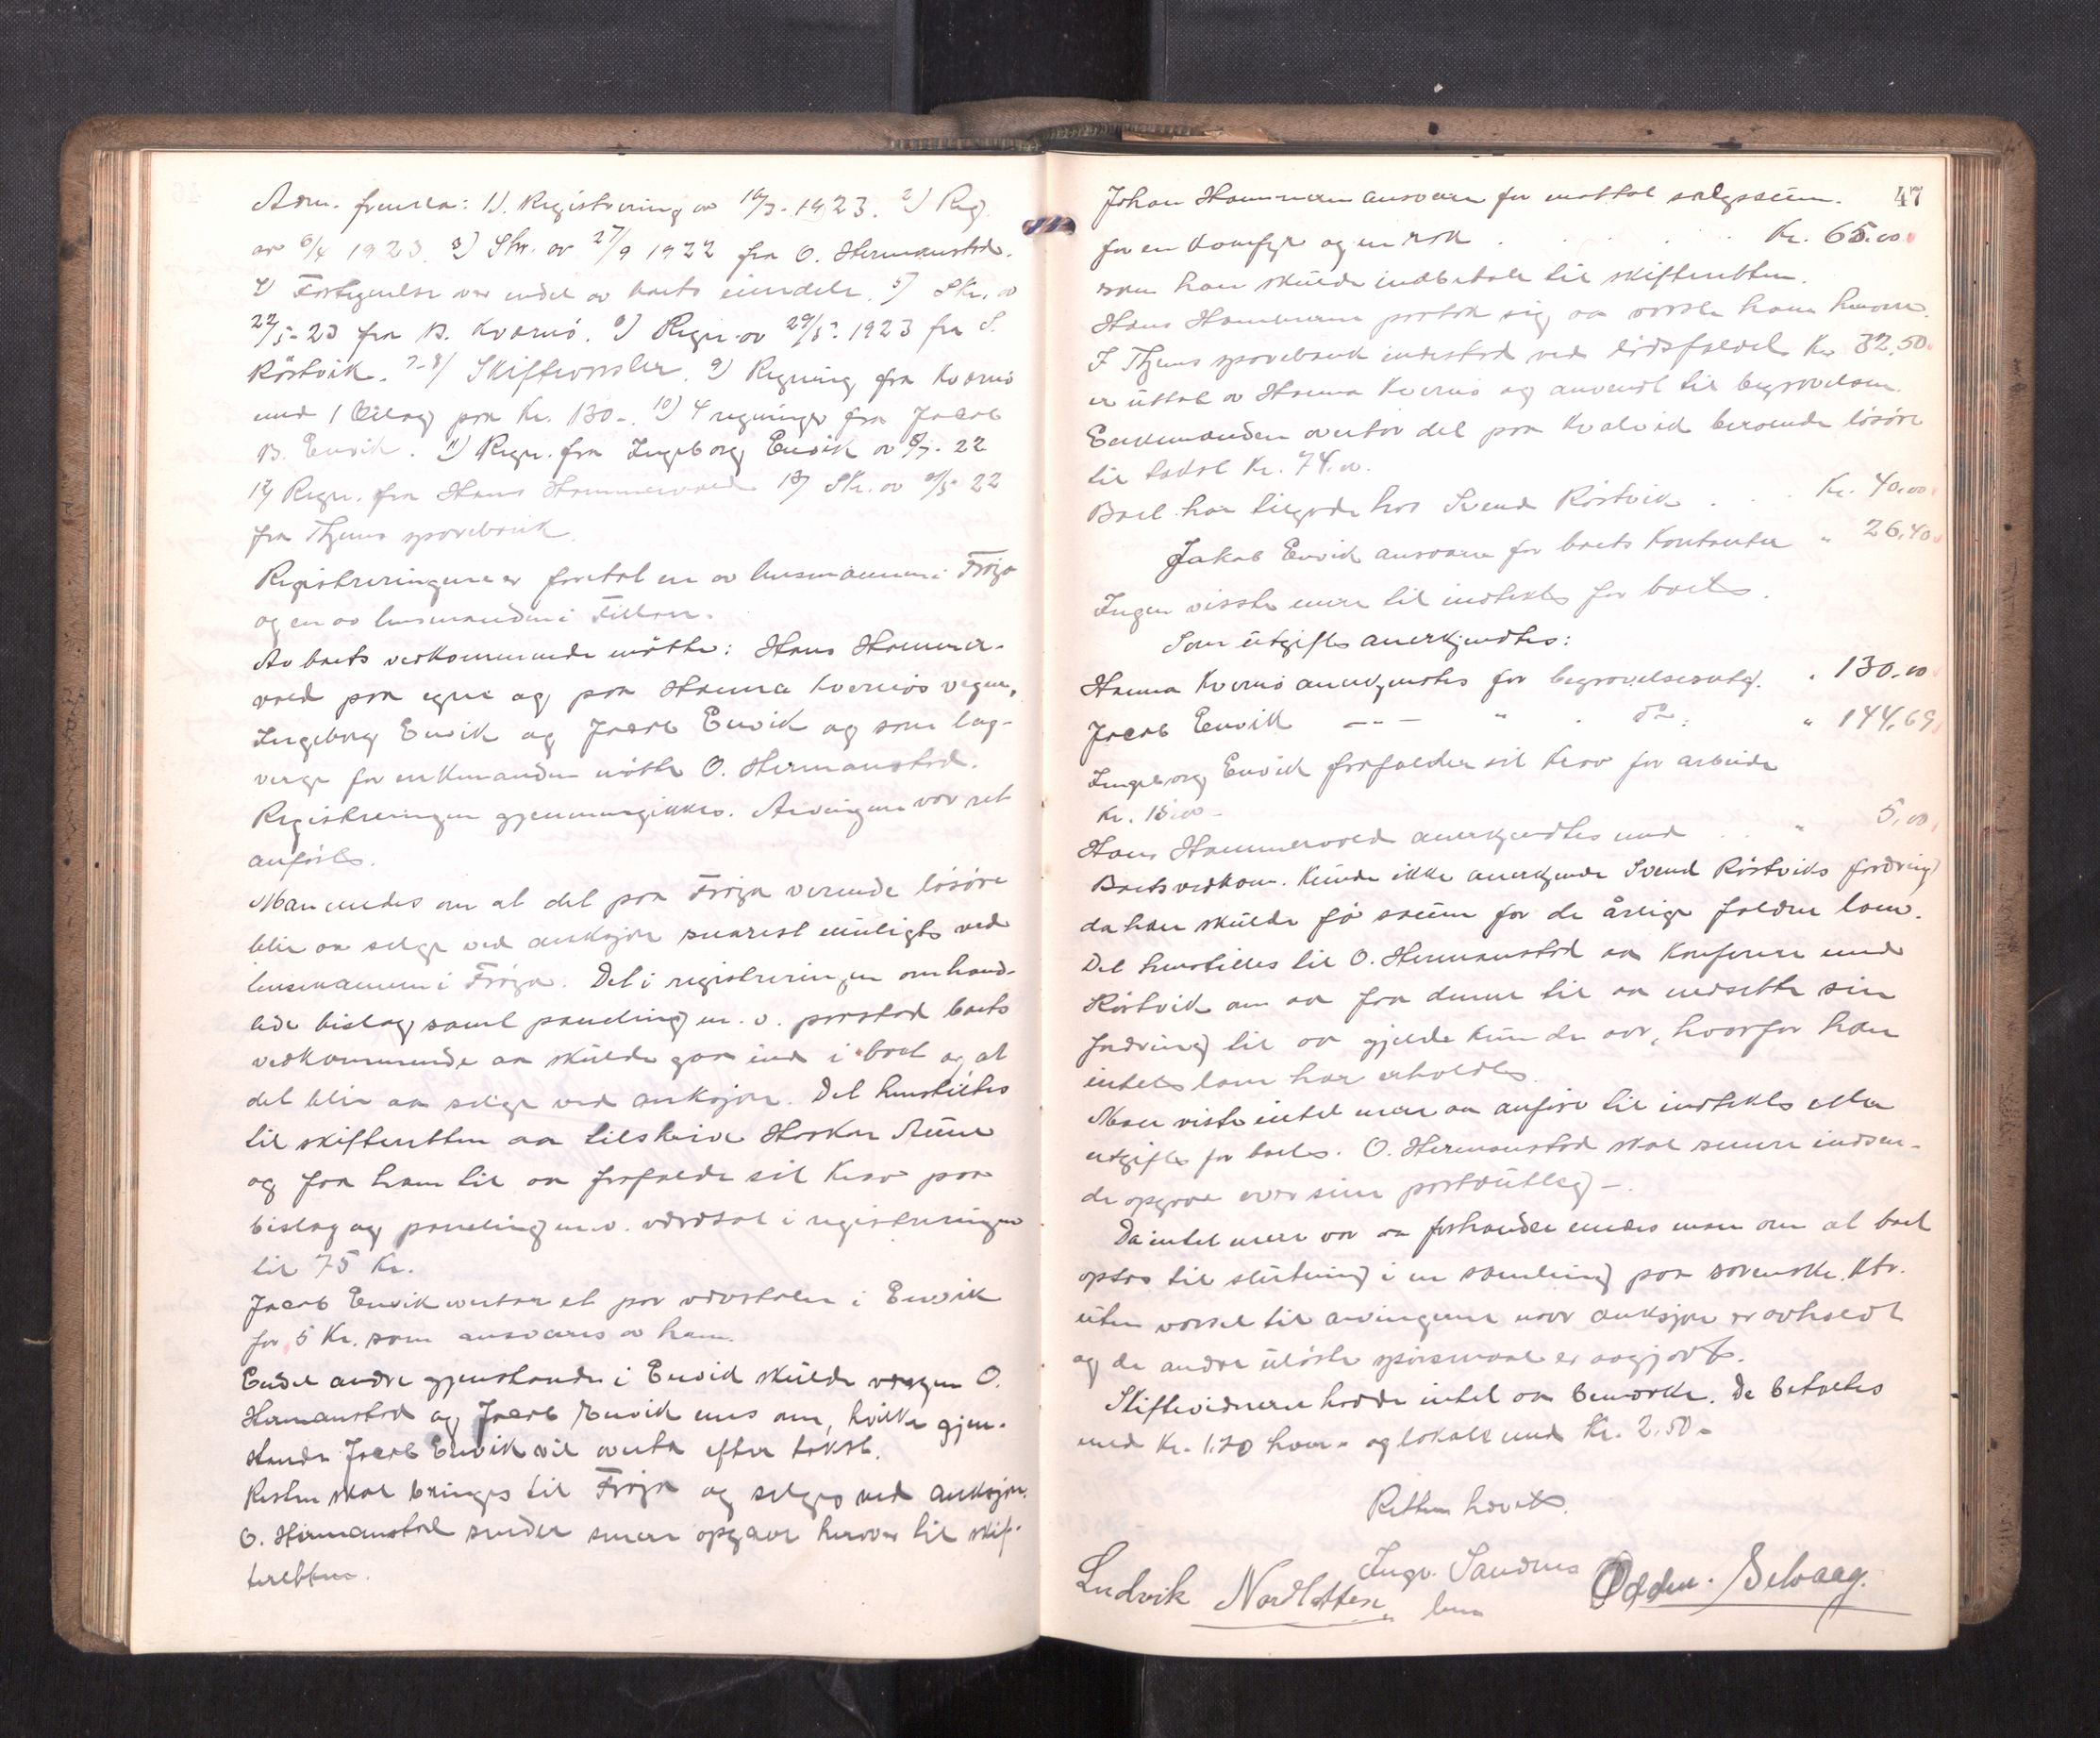 Adm. fremla: 1). Registrering av 16/3-1923. 2) Reg.
av 6/4 1923. 3) Skr. av 27/9 1922 fra O. Hermanstad.
4) Fortegnelse over endel av boets eiendele. 5) Skr. av
22/5-23 fra B. Kvernø. 6) Regn. av 29/5-1923 fra S.
Röstvik. 7-8) Skiftevarsler. 9) Regning fra Kvernø
med 1 bilag paa Kr. 130-. 10) 4 regninger fra Jacob
B. Envik. 11) Regn. fra Ingeborg Envik av 8/7-22
12) Regn. fra Hans Hammervold 13) Skr. av 22
fra Thjems sparebank.
Registreringene er foretat en av lensmannen i Fröya
og en av lensmanden i Fillan.
Av boets vedkommende mötte: Hans Hammer-
vold paa egne og paa Hanna Kvernös vegne,
Ingeborg Envik og Jacob Envik og som lag-
verge for enkemanden mötte O. Hermanstad.
Registreringen gjennemgikkes. Arvingene var ret
anförts.
Man enedes om at det paa Fröya verende lösöre
blir aa selge ved auksjon snarest muligts ved
lensmannen i Fröya. Det i registreringen omhand-
lede bislag samt paneling m.v. paastod boets
vedkommende aa skulde gaa ind i boet og at
det blir aa selge ved auksjon. Det henstilles
til skifteretten aa tilskrive Haakon Aune
og faa ham til aa frafalde sit krav paa
bislag og paneling m.v. værdsat i registreringen
til 75 Kr.
Jacob Envik overtar et par vævstoler i Envik
for 5 Kr. som ansvares av ham.
Endel andre gjenstande i Envik skulde vergen O.
Hermanstad og Jacob Envik enes om, hvilke gjen-
stande Jacob Envik vil overta efter takst.
Resten skal bringes til Fröya og selges ved auksjon.
O. Hermanstad sender senere opgave herover til skif-
teretten.
47
Johan Hammeren ansvarer for mottat salgssum
for en komfyr og en rok . . . . . Kr. 65.00
som han skulde indbetale til skifteretten.
Hans Hammeren paatok sig aa varsle ham herom.
I Thjems sparebank indestod ved dödsfaldet Kr. 32,50
er uttat av Hanna Kvernö og anvendt til begravelsen.
Enkemanden overtar det paa Kvalvik beroende lösöre
til takst Kr. 74.00.
Boet har tilgode hos Svend Röstvik . . . Kr. 40,00
Jakob Envik ansvarer for boets kontanter " 26,40
Ingen visste mere til indtekts for boets.
Som utgifts anerkjendtes:
Hanna Kvernö anerkjendtes for begravelsesutg. " 130,00
Jacob Envik — " — " " do. " 144,69
Ingeborg Envik frafalder sit krav for arbeide
Kr. 15.00 -
Hans Hammervold anerkjendtes med . . " 5,00
Boets vedkom. kunde ikke anerkjende Svend Röstviks fordring
da han skulde få sauen for de årlige foldne lam.
Det henstilles til O. Hermanstad aa konferere med
Röstvik om aa faa denne til aa nedsette sin
fordring til aa gjelde kun de aar, hvorfor han
intets lam har erholdts.
Man viste intet mere aa anföre til indtekts eller
utgifts for boets. O. Hermanstad skal senere indsen-
de opgave over sine portoutleg -.
Da intet mere var aa forhandle enedes man om at boet
optas til slutning i en samling paa sorenskr. ktr.
uten varsel til arvingene naar auksjon er avholdt
og de andre ulöste spörsmaal er avgjort.
Skiftevidnene hadde intet aa bemerke. De betaltes
med Kr. 1.20 hver - og lokale med Kr. 2.50-
Retten hævets.
Ingv. Sandnes
Ludvik Nordhotten Odden. Selvaag.
lm